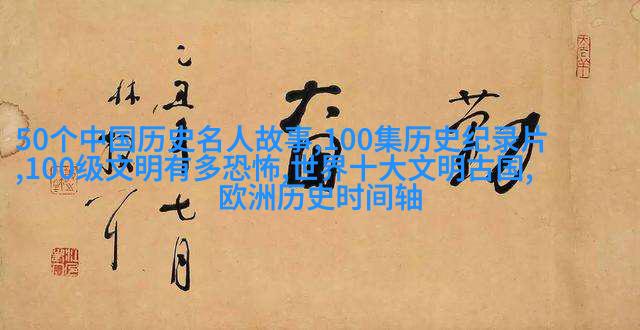 50个中国历史名人故事,100集历史纪录片
,100级文明有多恐怖,世界十大文明古国,
欧洲历史时间轴
勤奋
乙丑年七月
林